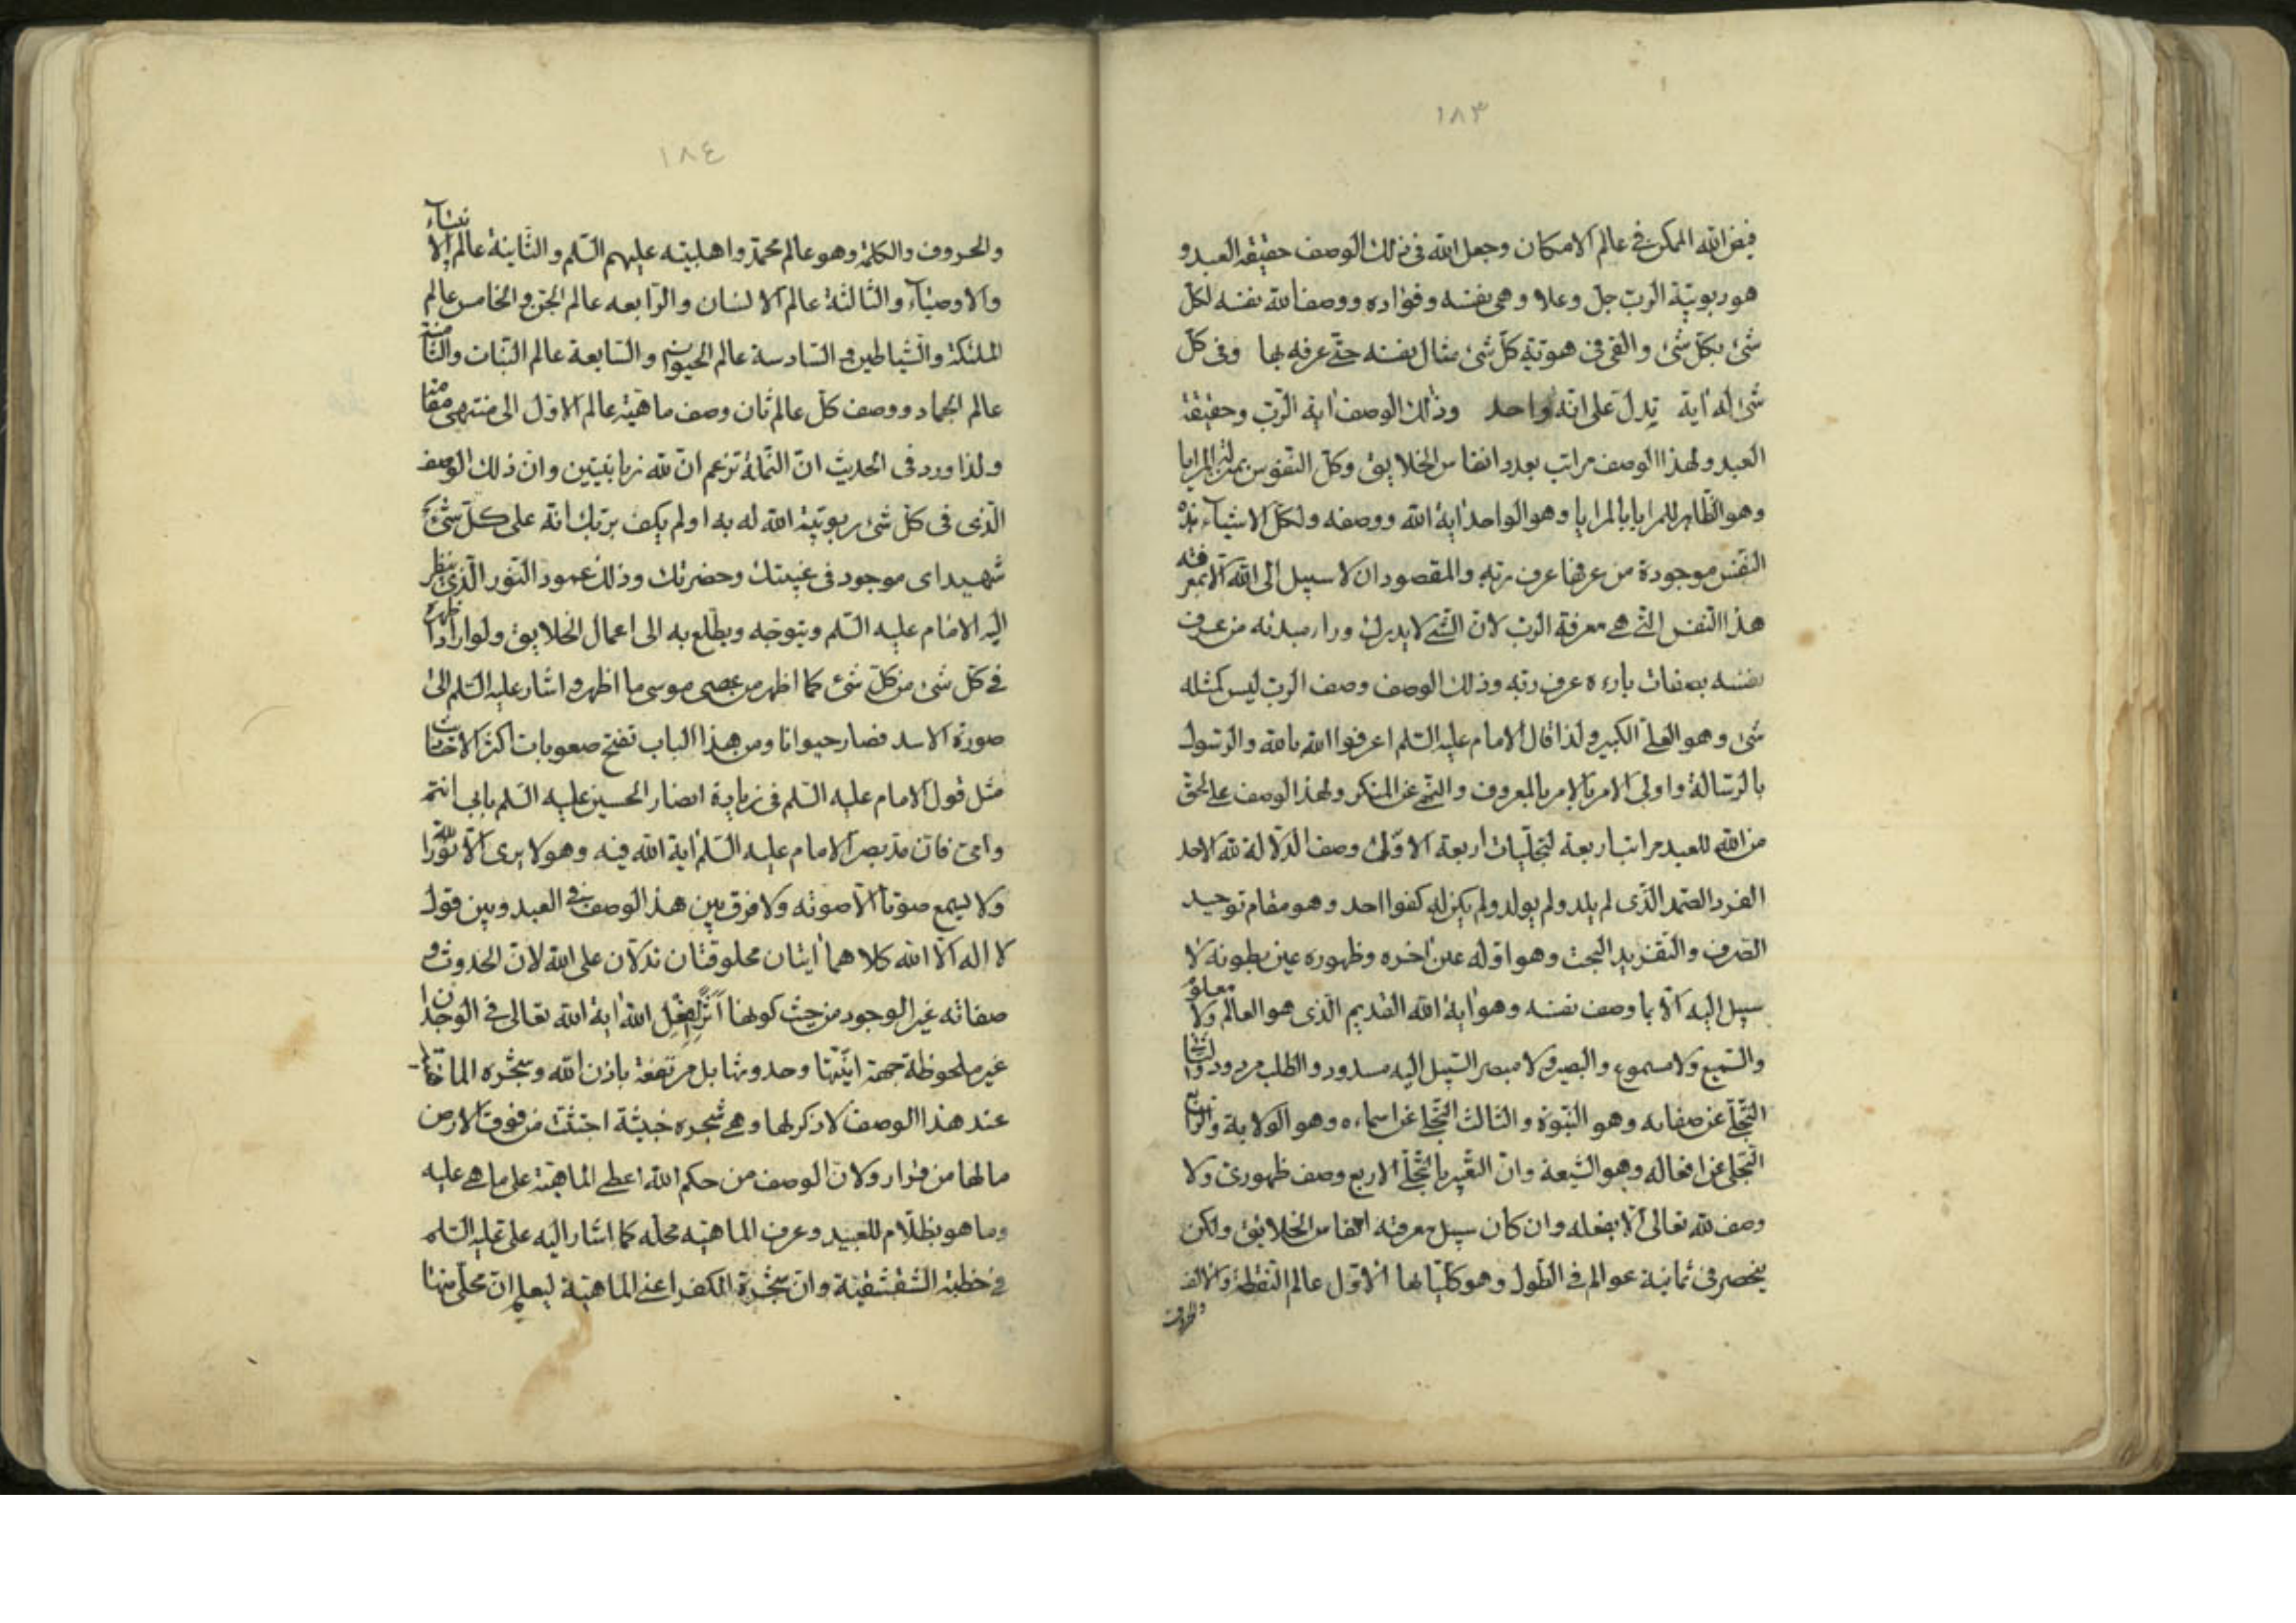 ١٨٣
فيض الله الممكن في عالم الامكان وجعل الله في ذلك الوصف حقيقة العبد و
هو ربوبيّة الربّ جلّ وعلا وهي نفسه وفؤاده ووصف الله نفسه لكلّ
شئ بكلّ شئ والقى في هويّة كلّ شئ مثال نفسه حتّى عرفه بها وفي كلّ
شئ له اية تدلّ على انّه واحد وذلك الوصف اية الربّ وحقيقة
العبد ولهذا الوصف مراتب بعدد انفاس الخلايق وكلّ النّفوس بمنزلة المرايا
وهو الظّاهر للمرايا بالمرايا وهو الواحد اية الله ووصفه ولكلّ الاشياء هذه
النّفس موجودة من عرفها عرف ربّه والمقصود ان لا سبيل الى الله الّا بمعرفة
هذا النّفس الّتي هي معرفة الربّ لانّ الشّئ لا يدرك وراء مبدئه من عرف
نفسه بصفات بارءه عرف ربّه وذلك الوصف وصف الربّ ليس كمثله
شئ وهو العلىّ الكبير ولذا قال الامام عليه السّلم اعرفوا الله بالله والرّسول
بالرّسالة واولى الامر بالامر بالمعروف والنّهي عن المنكر ولهذا الوصف على الحقّ
من الله للعبد مراتب اربعة لتجلّيات اربعة الاوّلى وصف الدّلالة لله الاحد
الفرد الصّمد الّذى لم يلد ولم يولد ولم يكن له كفوا احد وهو مقام توحيد
الصّرف والتّفريد البحت وهو اوّله عين اخره وظهوره عين بطونه لا
سبيل اليه الّا بما وصف نفسه وهو اية الله القديم الّذى هو العالم ولا معلوم
والسّميع ولا مسموع والبصير ولا مبصر السّبيل اليه مسدود والطلب مردود والثّانى
التّجلّى عن صفاته وهو النّبوّة والثالث التّجلّى عن اسماءه وهو الولاية والرّابع
التّجلى عن افعاله وهو الشّيعة وانّ التّعبير بالتّجلّى الاربع وصف ظهورىّ ولا
وصف لله تعالى الّا بفعله وان كان سبيل معرفته انفاس الخلايق ولكن
ينحصر فى ثمانية عوالم فى الطّول وهو كلّياتها الاوّل عالم النّقطة والالف
والحروف
١٨٤
والحروف والكلمة وهو عالم محمّد واهلبيته عليهم السّلم والثّانية عالم الانبياء
والاوصياء والثالثة عالم الانسان والرّابعه عالم الجنّ والخامس عالم
الملئكة والشّياطين والسّادسة عالم الحيوان والسّابعة عالم النّبات والثّامنة
عالم الجماد ووصف كلّ عالم ثان وصف ماهيّة عالم الاوّل الى منتهى مقامه
ولذا ورد فى الحديث انّ النّملة تزعم انّ لله زبانيتين وانّ ذلك الوصف
الّذى فى كلّ شئ ربوبيّة الله له به اولم يكف بربّك انّه على كلّ شئ
شهيد اى موجود فى غيبتك وحضرتك وذلك عمود النّور الّذى ينظر
اليه الامام عليه السّلم ويتوجّه ويطّلع به الى اعمال الخلايق ولو اراد اظهره
فى كلّ شئ من كلّ شئ كما اظهر من عصى موسى ما اظهر واشار عليه السّلم الى
صورة الاسد فصار حيوانا ومن هذا الباب تفتح صعوبات اكثر الاخبار
مثل قول الامام عليه السّلم فى زيارة انصار الحسين عليه السّلم بابى انتم
وامّى فانّ مذ بصر الامام عليه السّلم اية الله فيه وهو لا يرى الّا نور الله
ولا يسمع صوتا الّا صوته ولا فرق بين هذا الوصف فى العبد وبين قول
لا اله الّا الله كلاهما ايتان مخلوقتان تدلّان على الله لانّ الحدوث و
صفاته غير الوجود من حيث كونها اثر لفعل الله اية الله تعالى فى الوجدان
غير ملحوظة جهة انيّتها وحدوثها بل مرتفعة باذن الله وشجره الماهيّة
عند هذا الوصف لا ذكر لها وهى شجره خبيثة اجتثّت من فوق الارض
مالها من قرار ولانّ الوصف من حكم الله اعطى الماهيّة على ما هى عليه
وما هو بظلّام للعبيد وعرف الماهيّه محلّه كما اشار اليه علىّ عليه السّلم
فى خطبة الشّقشقيّة وانّ شجرة الكفر اعنى الماهيّة ليعلم انّ محلّى منها